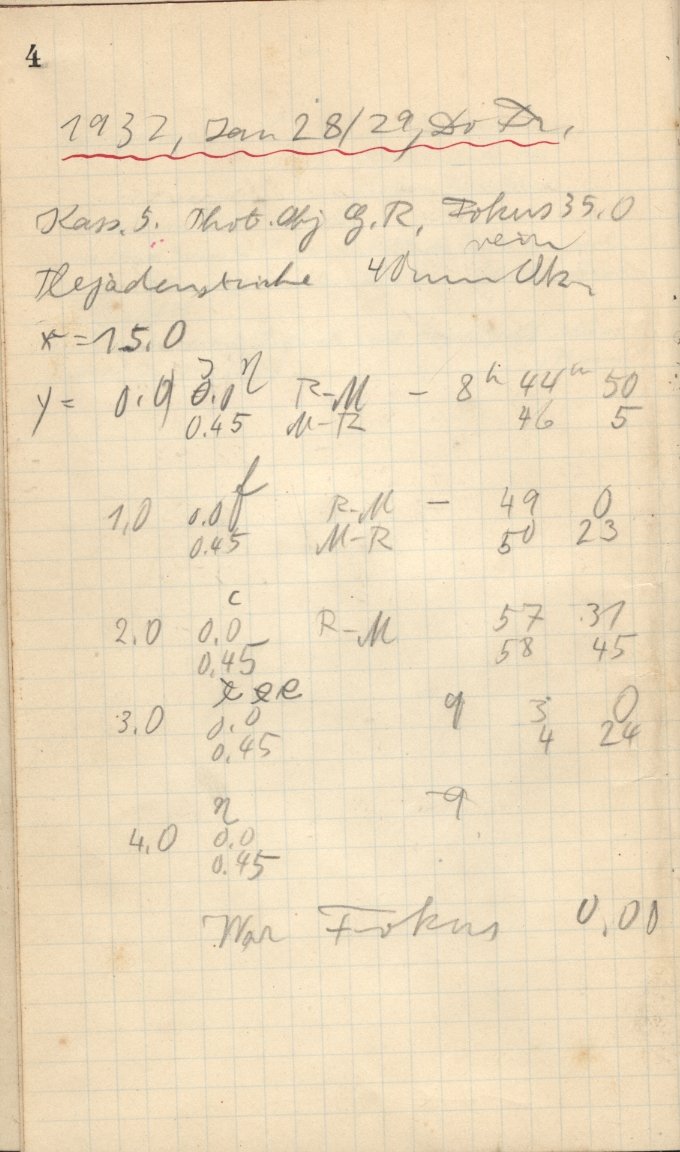 4
1932, Jan 28/29, Do Fr.
Kass. 5. Phot. Obj G.R. Fokus 35.0
rein
Plejadenstriche 40mm Ok.
x = 15.0
y = 0.0 0.0 η R-M - 8h 44m 50
0.45 M-R 46 5
f
1.0 0.0 R-M - 49 0
0.45 M-R 50 23
c
2.0 0.0 R-M 57 31
0.45 58 45
e
3.0 0.0 9 3 0
0.45 4 24
η 9
4.0 0.0
0.45
War Fokus 0.00